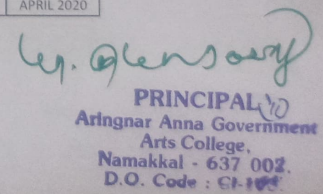 APRIL 2020
PRINCIPAL
Aringnar Anna Government
Arts College,
Namakkal - 637 002.
D.O. Code :